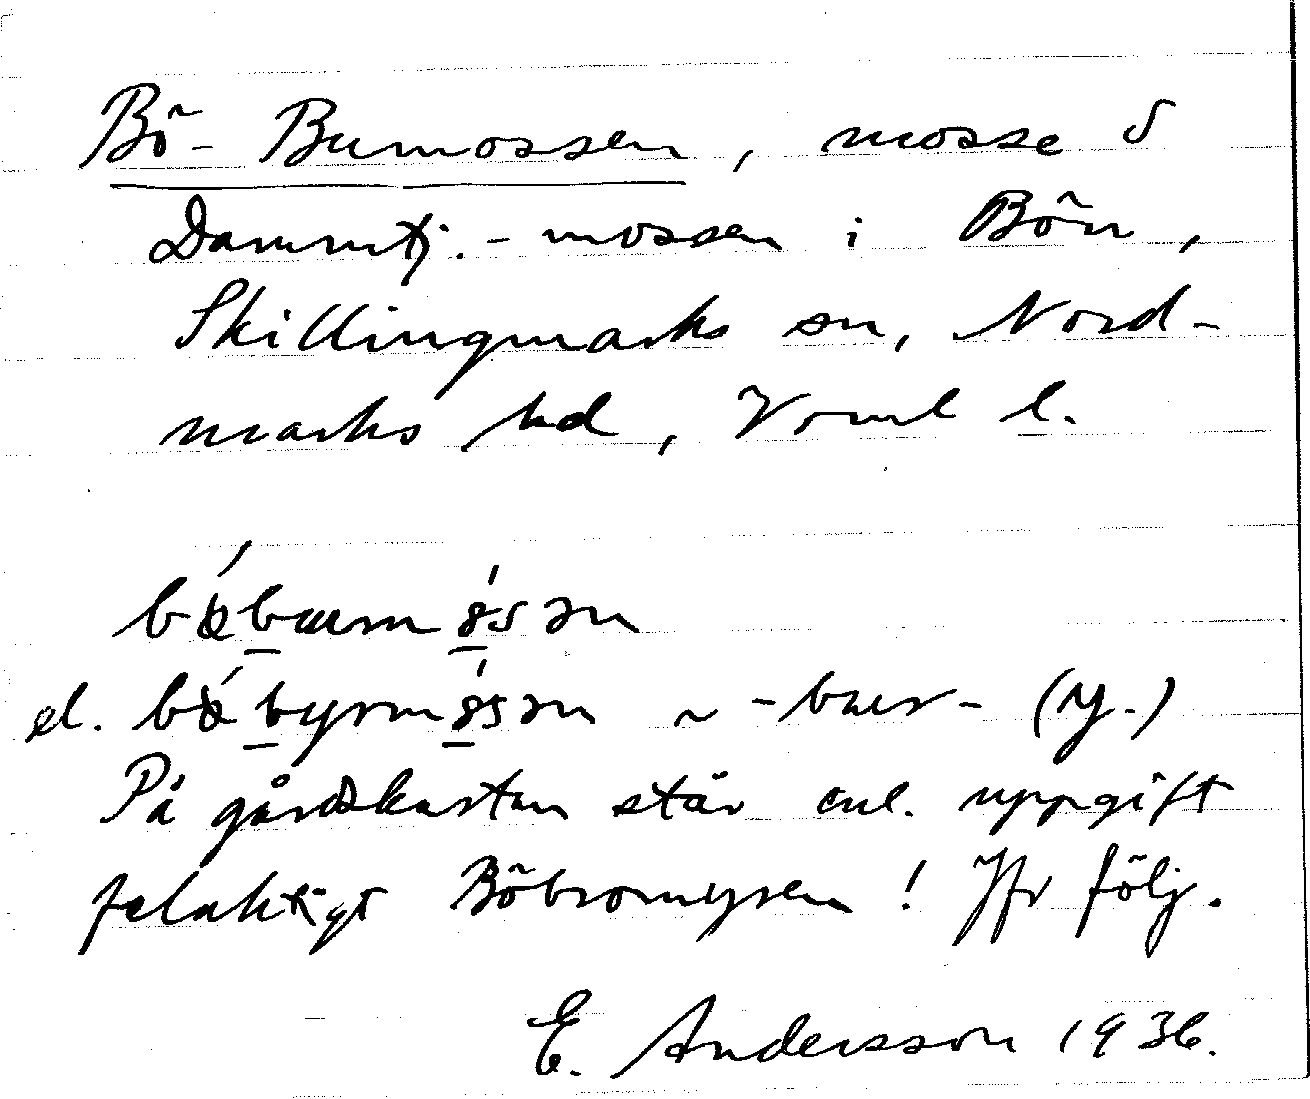 Bö- Bumossen, mosse S
Dammtj.-mossen i Bön,
Skillingmarks sn, Nord-
marks hd, Vrml l.
el. ~ -bur- (y.)
På gårdskartan står enl. uppgift
felaktigt Böbromyren! Jfr följ.
E. Andersson 1936.